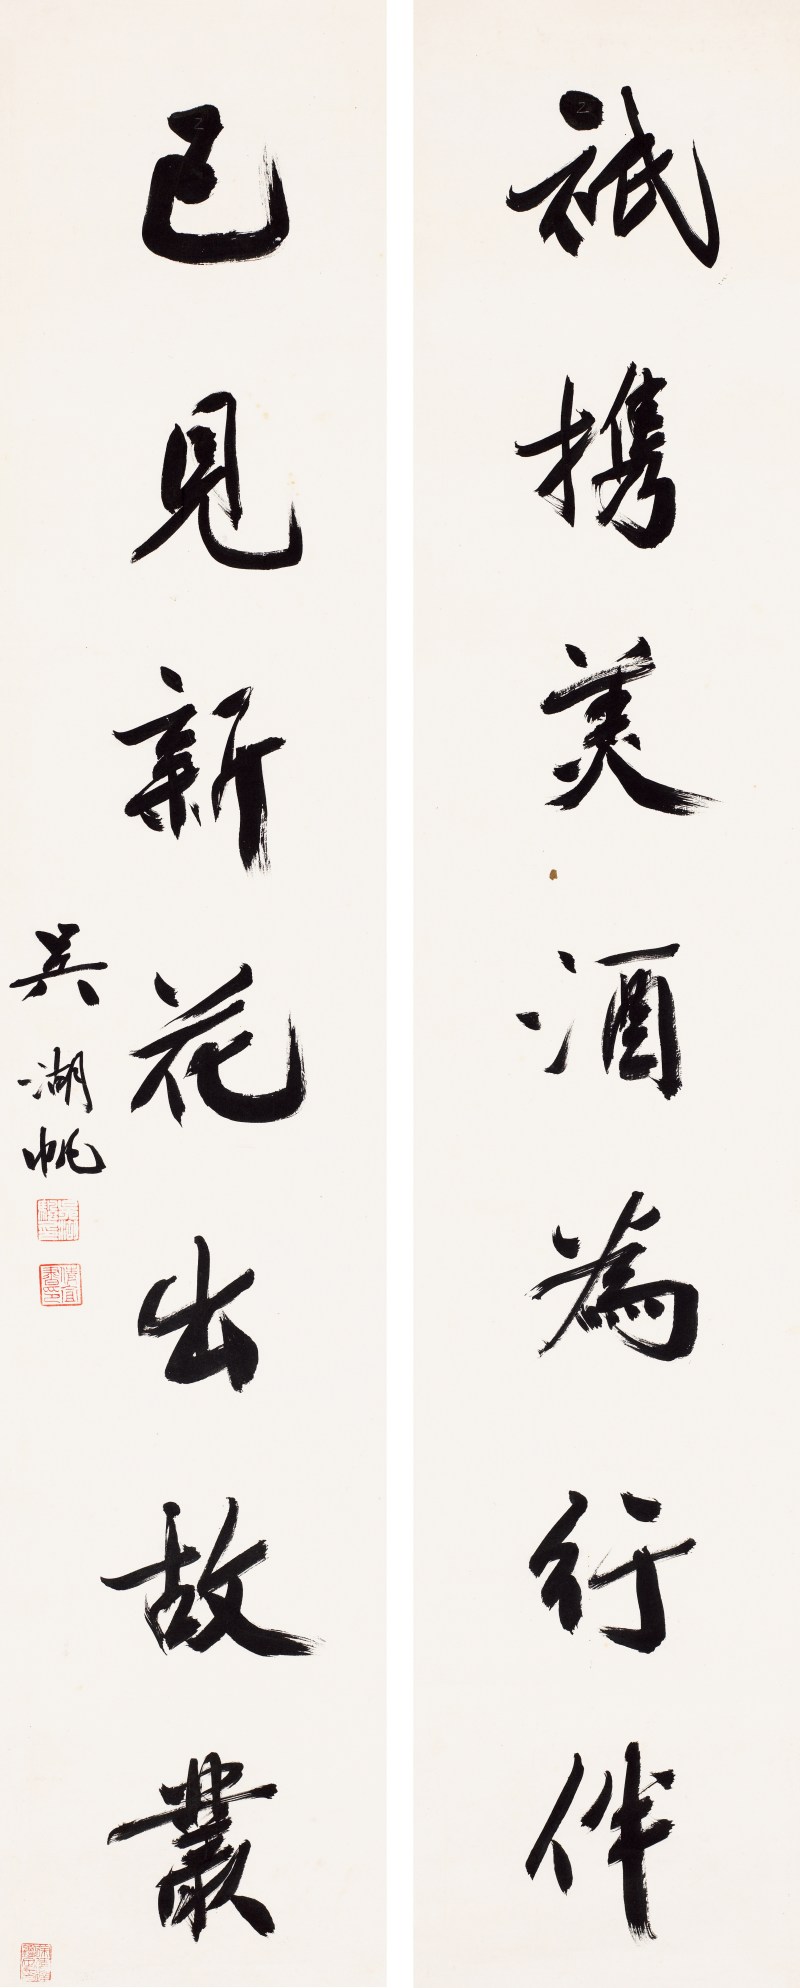 祇攜美酒為行伴
已見新花出故叢
吳湖帆